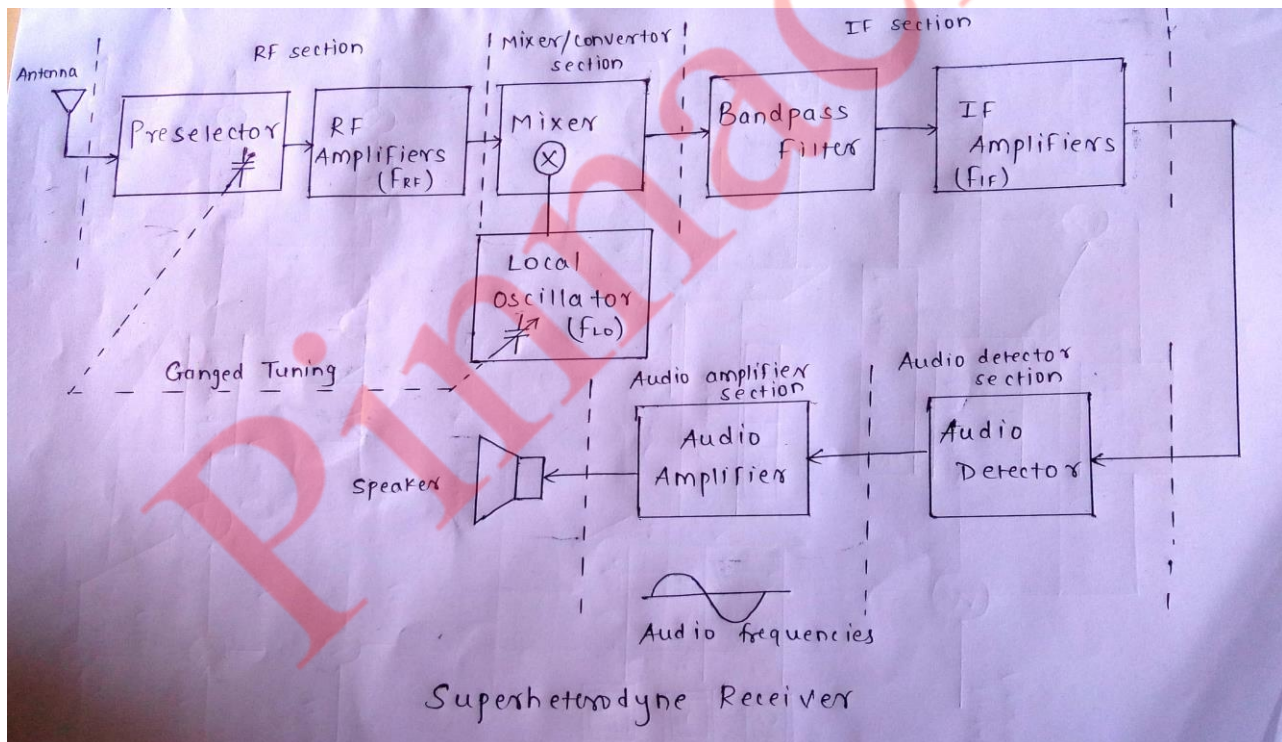 Antenna
RF section
Mixer/convertor
section
IF section
Preselector
RF
Amplifiers
(fRF)
Mixer
Bandpass
Filter
IF
Amplifiers
(fIF)
Local
Oscillator
(fLO)
Ganged Tuning
Audio amplifier
section
Audio detector
section
Speaker
Audio
Amplifier
Audio
Detector
Audio frequencies
Superheterodyne Receiver